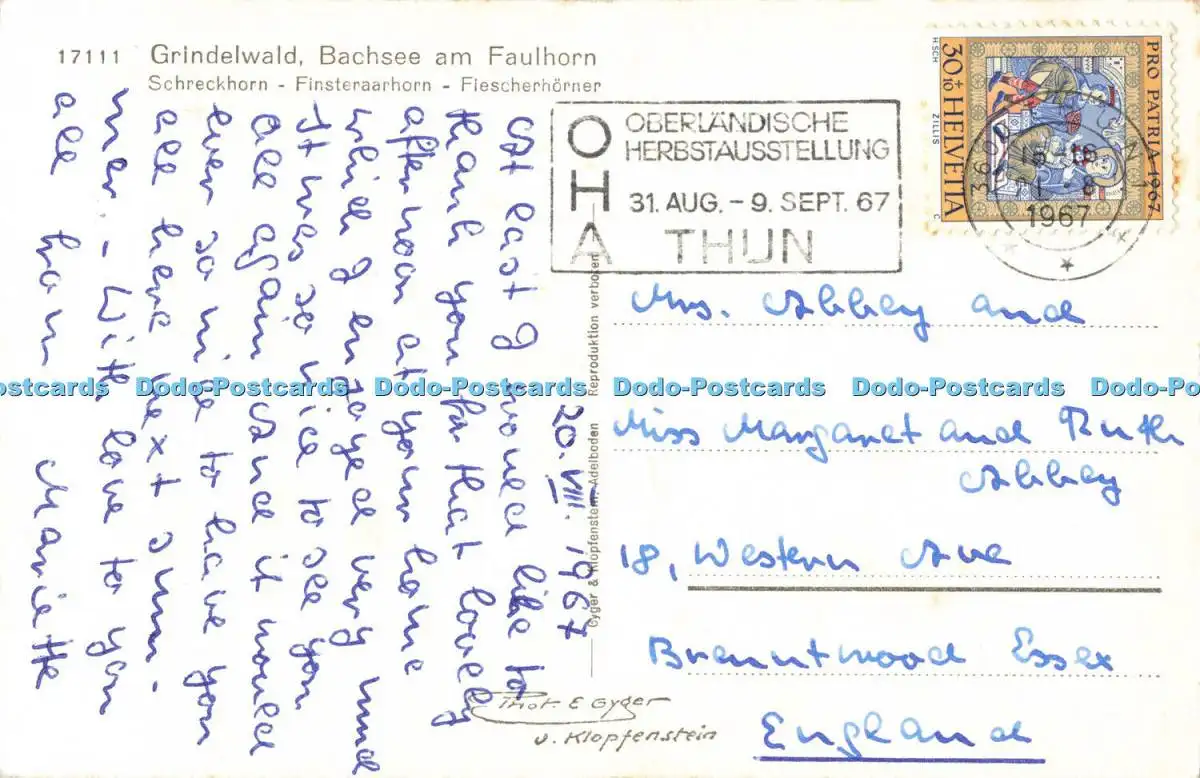 17111 Grindelwald, Bachsee am Faulhorn
Schreckhorn - Finsteraarhorn - Fiescherhörner
OHA
OBERLÄNDISCHE
HERBSTAUSSTELLUNG
31. AUG. - 9. SEPT. 67
THUN
PRO PATRIA 1967
30+10 HELVETIA
H.SCH ZILLIS C
3600 THUN 1
1967
20.VIII.1967
At last I would like to
thank you for that lovely
afternoon at your home
which I enjoyed very much
It was so nice to see you
all again and it would
ever so nice to have you
all here next sum-
mer. - With love to you
all from
Mariette
Gyger & Klopfenstein, Adelboden Reproduktion verboten
Mrs. Abbey and
Miss Margaret and Ruth
Abbey
18, Western Ave
Brenntwood Essex
England
Phot. E Gyger
u. Klopfenstein
Dodo-Postcards Dodo-Postcards Dodo-Postcards Dodo-Postcards Dodo-Postcards Dodo-Postcards